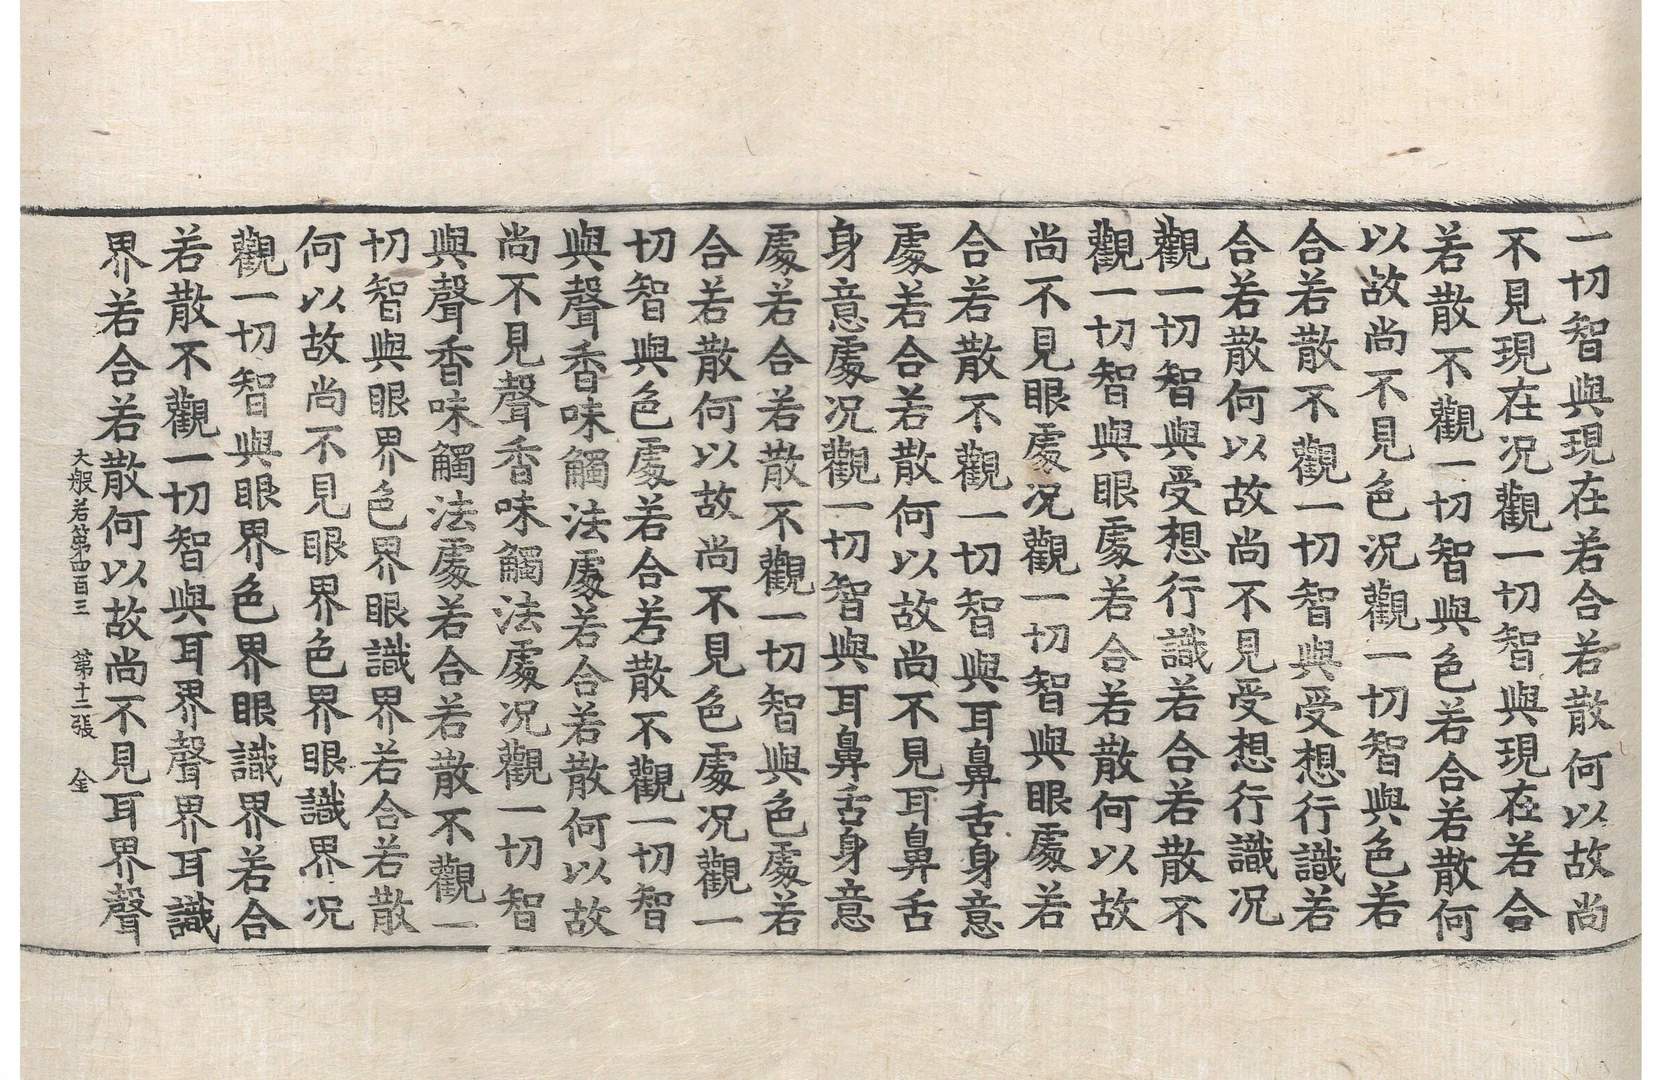 一切智與現在若合若散何以故尚
不見現在况觀一切智與現在若合
若散不觀一切智與色若合若散何
以故尚不見色况觀一切智與色若
合若散不觀一切智與受想行識若
合若散何以故尚不見受想行識况
觀一切智與受想行識若合若散不
觀一切智與眼處若合若散何以故
尚不見眼處况觀一切智與眼處若
合若散不觀一切智與耳鼻舌身意
處若合若散何以故尚不見耳鼻舌
身意處况觀一切智與耳鼻舌身意
處若合若散不觀一切智與色處若
合若散何以故尚不見色處况觀一
切智與色處若合若散不觀一切智
與聲香味觸法處若合若散何以故
尚不見聲香味觸法處况觀一切智
與聲香味觸法處若合若散不觀一
切智與眼界色界眼識界若合若散
何以故尚不見眼界色界眼識界况
觀一切智與眼界色界眼識界若合
若散不觀一切智與耳界聲界耳識
界若合若散何以故尚不見耳界聲
大般若第四百三 第十二張 全